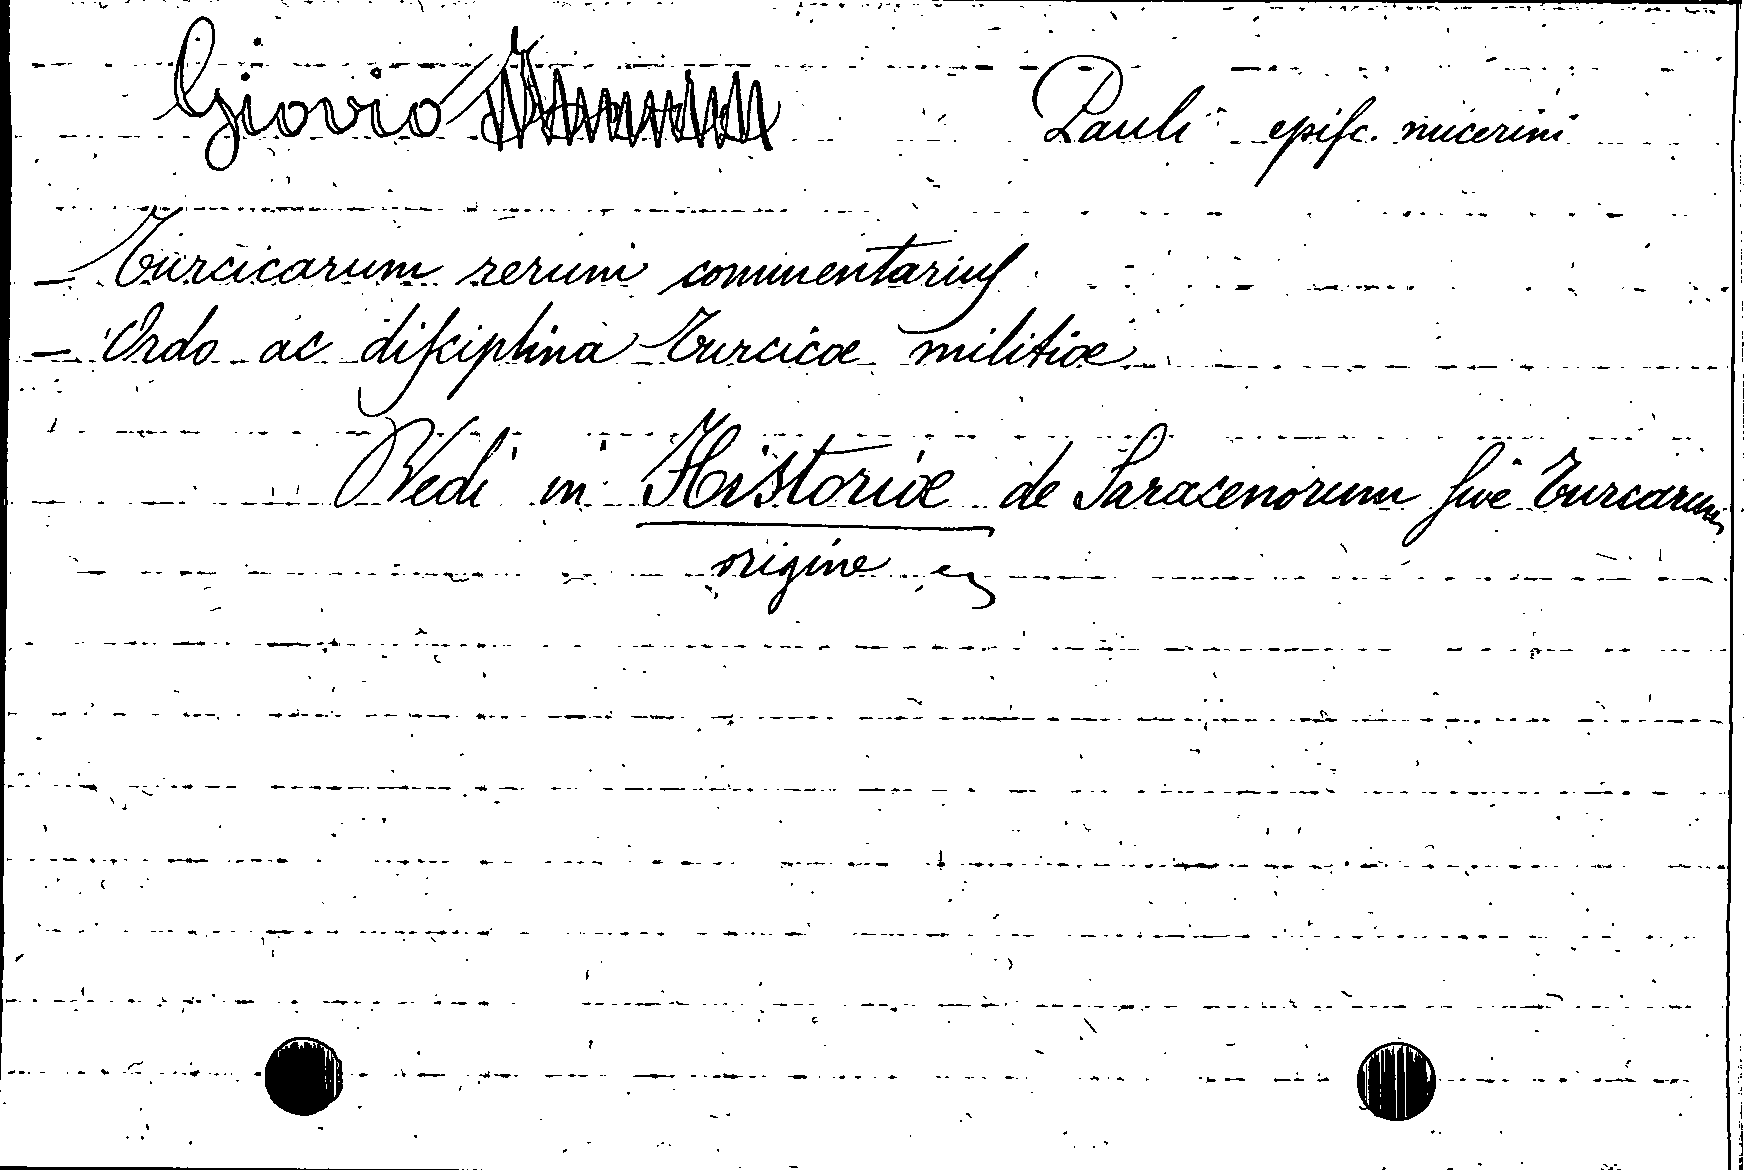 Giovio Pauli episc. nucerini
– Turcicarum rerum commentarius
– Ordo ac disciplina Turcicæ militiæ
Vedi in Historiæ de Saracenorum sive Turcarum
origine